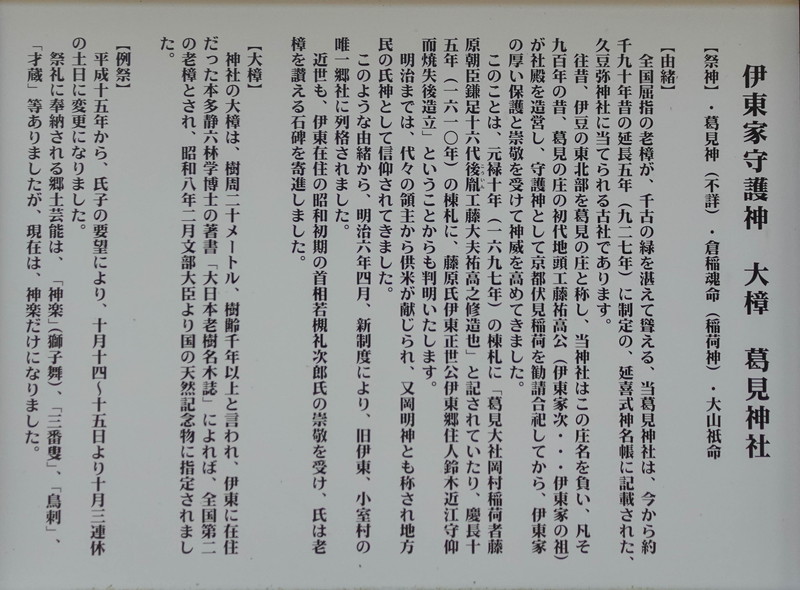 伊東家守護神　大樟　葛見神社
【祭神】・葛見神（不詳）・倉稲魂命（稲荷神）・大山祇命
【由緒】
全国屈指の老樟が、千古の緑を湛えて聳える、当葛見神社は、今から約
千九十年昔の延長五年（九二七年）に制定の、延喜式神名帳に記載された、
久豆弥神社に当てられる古社であります。
往昔、伊豆の東北部を葛見の庄と称し、当神社はこの庄名を負い、凡そ
九百年の昔、葛見の庄の初代地頭工藤祐高公（伊東家次・・・伊東家の祖）
が社殿を造営し、守護神として京都伏見稲荷を勧請合祀してから、伊東家
の厚い保護と崇敬を受けて神威を高めてきました。
このことは、元禄十年（一六九七年）の棟札に「葛見大社岡村稲荷者藤
原朝臣鎌足十六代後胤工藤大夫祐高之修造也」と記されていたり、慶長十
五年（一六一〇年）の棟札に、藤原氏伊東正世公伊東郷住人鈴木近江守仰
而焼失後造立」ということからも判明いたします。
明治までは、代々の領主から供米が献じられ、又岡明神とも称され地方
民の氏神として信仰されてきました。
このような由緒から、明治六年四月、新制度により、旧伊東、小室村の
唯一郷社に列格されました。
近世も、伊東在住の昭和初期の首相若槻礼次郎氏の崇敬を受け、氏は老
樟を讃える石碑を寄進しました。
【大樟】
神社の大樟は、樹周二十メートル、樹齢千年以上と言われ、伊東に在住
だった本多静六林学博士の著書「大日本老樹名木誌」によれば、全国第二
の老樟とされ、昭和八年二月文部大臣より国の天然記念物に指定されまし
た。
【例祭】
平成十五年から、氏子の要望により、十月十四～十五日より十月三連休
の土日に変更になりました。
祭礼に奉納される郷土芸能は、「神楽」（獅子舞）、「三番叟」、「鳥刺」、
「才蔵」等ありましたが、現在は、神楽だけになりました。